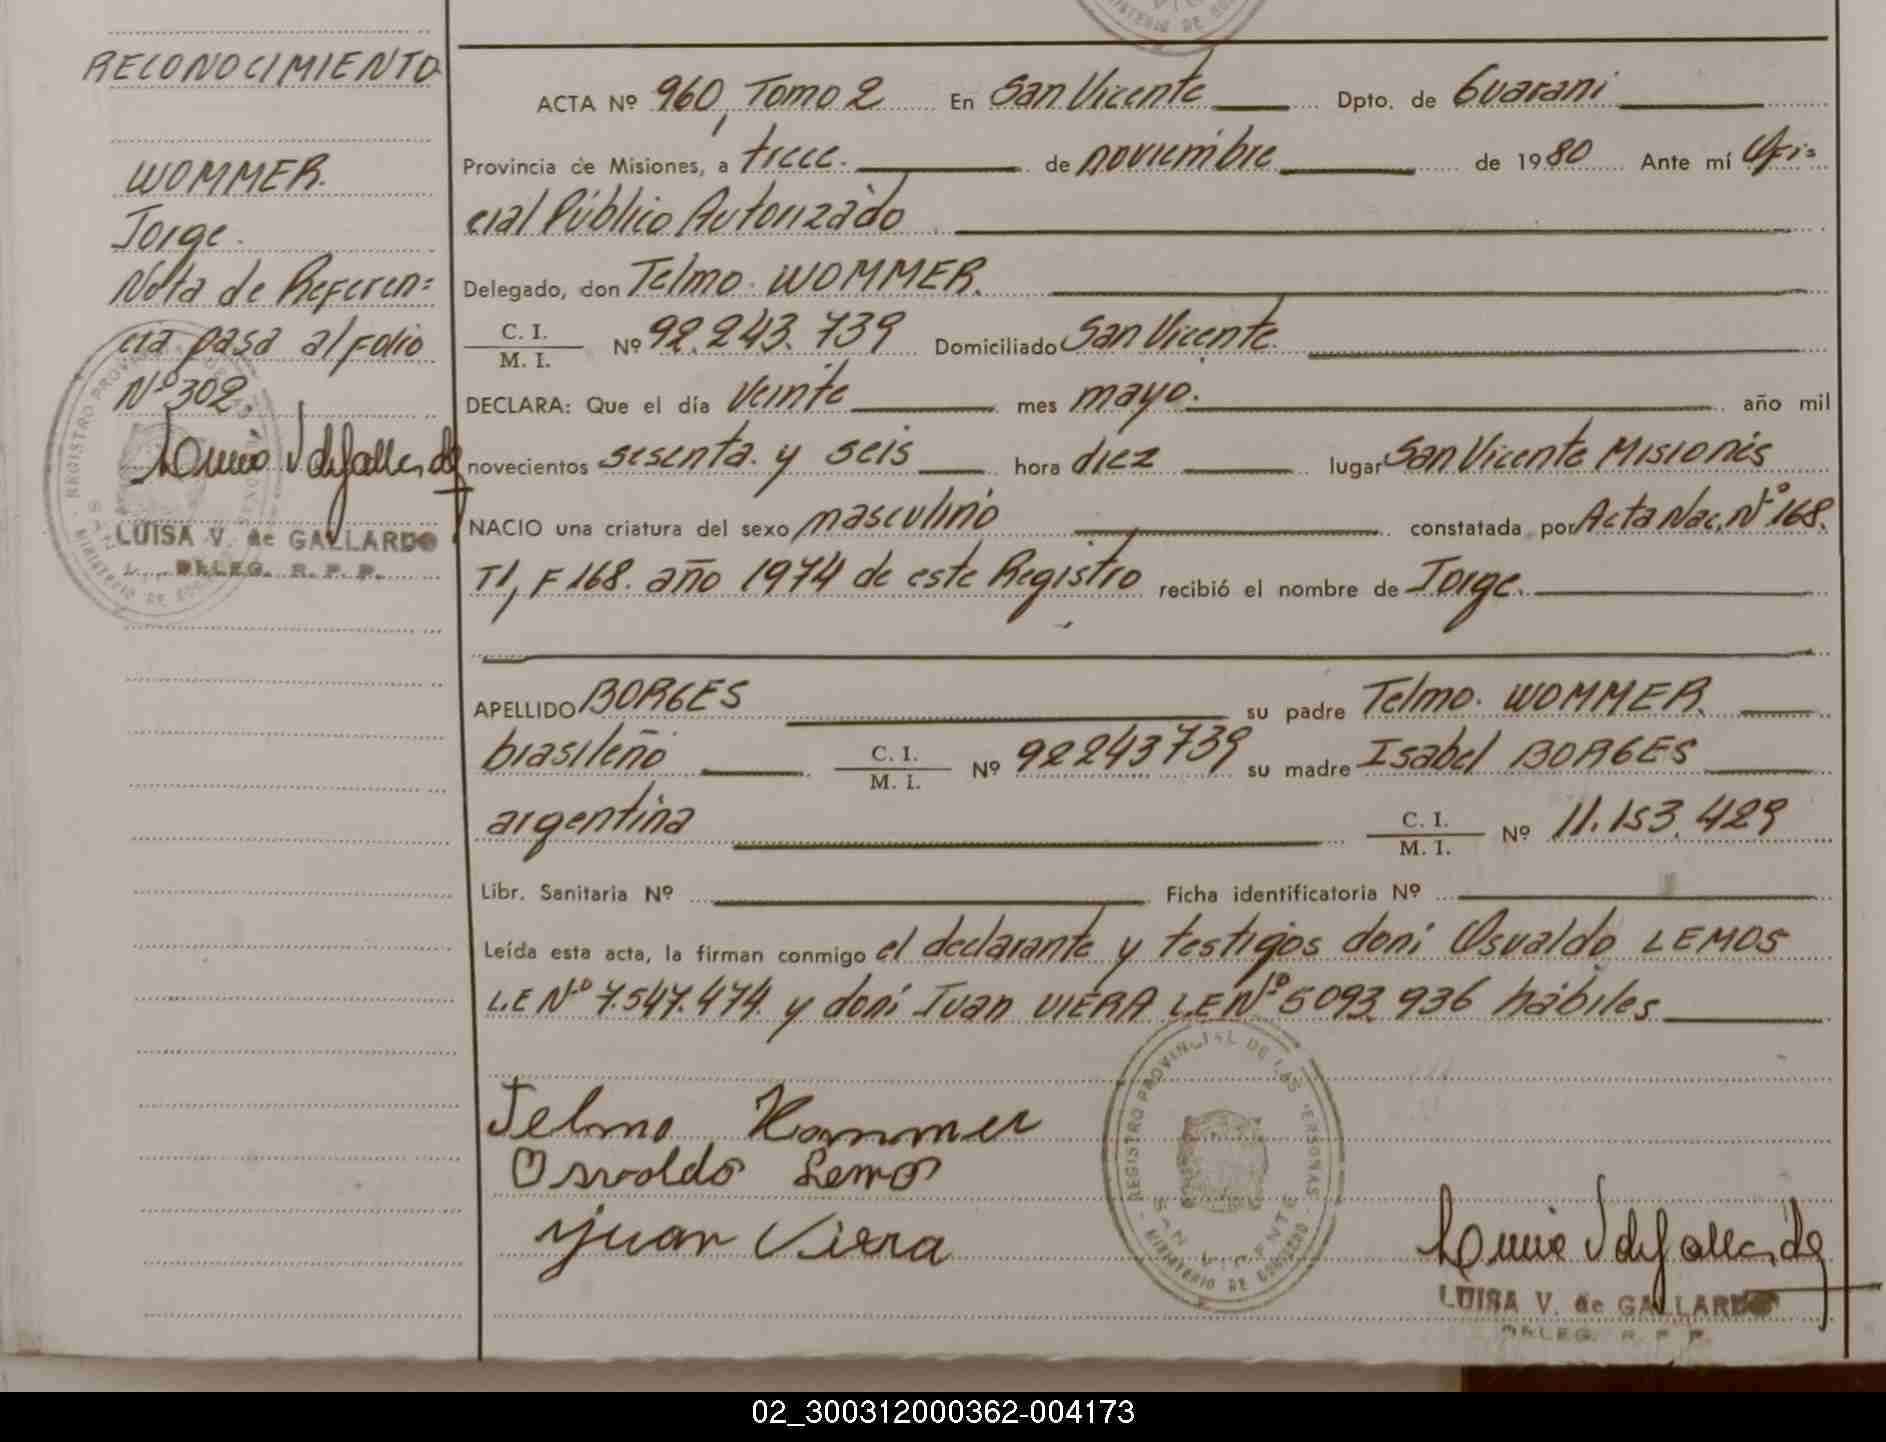 RECONOCIMIENTO
WOMMER.
Jorge.
Nota de Referen=
cia pasa al folio
Nº 302.
LUISA V. de GALLARDO
DELEG. R. P. P.
ACTA Nº 960, Tomo 2 En San Vicente Dpto. de Guarani
Provincia de Misiones, a trece. de noviembre de 1980 Ante mí Ofi=
cial Público Autorizado
Delegado, don Telmo. WOMMER.
C. I.
M. I. Nº 92.243.739 Domiciliado San Vicente.
DECLARA: Que el día veinte mes mayo. año mil
novecientos sesenta y seis hora diez lugar San Vicente Misiones
NACIO una criatura del sexo masculino constatada por Acta Nac. Nº 168.
T1, F 168. año 1974 de este Registro recibió el nombre de Jorge.
APELLIDO BORGES su padre Telmo. WOMMER.
brasileño C. I.
M. I. Nº 92243739 su madre Isabel BORGES
argentina C. I.
M. I. Nº 11.153.429
Libr. Sanitaria Nº Ficha identificatoria Nº
Leída esta acta, la firman conmigo el declarante y testigos don: Osvaldo LEMOS
L.E Nº 7.547.474. y don: Juan VIERA L.E Nº 5093.936 hábiles
Telmo Wommer
Osvaldo Lemos
Juan Viera
REGISTRO PROVINCIAL DE LAS PERSONAS
SAN VICENTE
MINISTERIO DE GOBIERNO
LUISA V. de GALLARDO
DELEG. R. P. P.
02_300312000362-004173